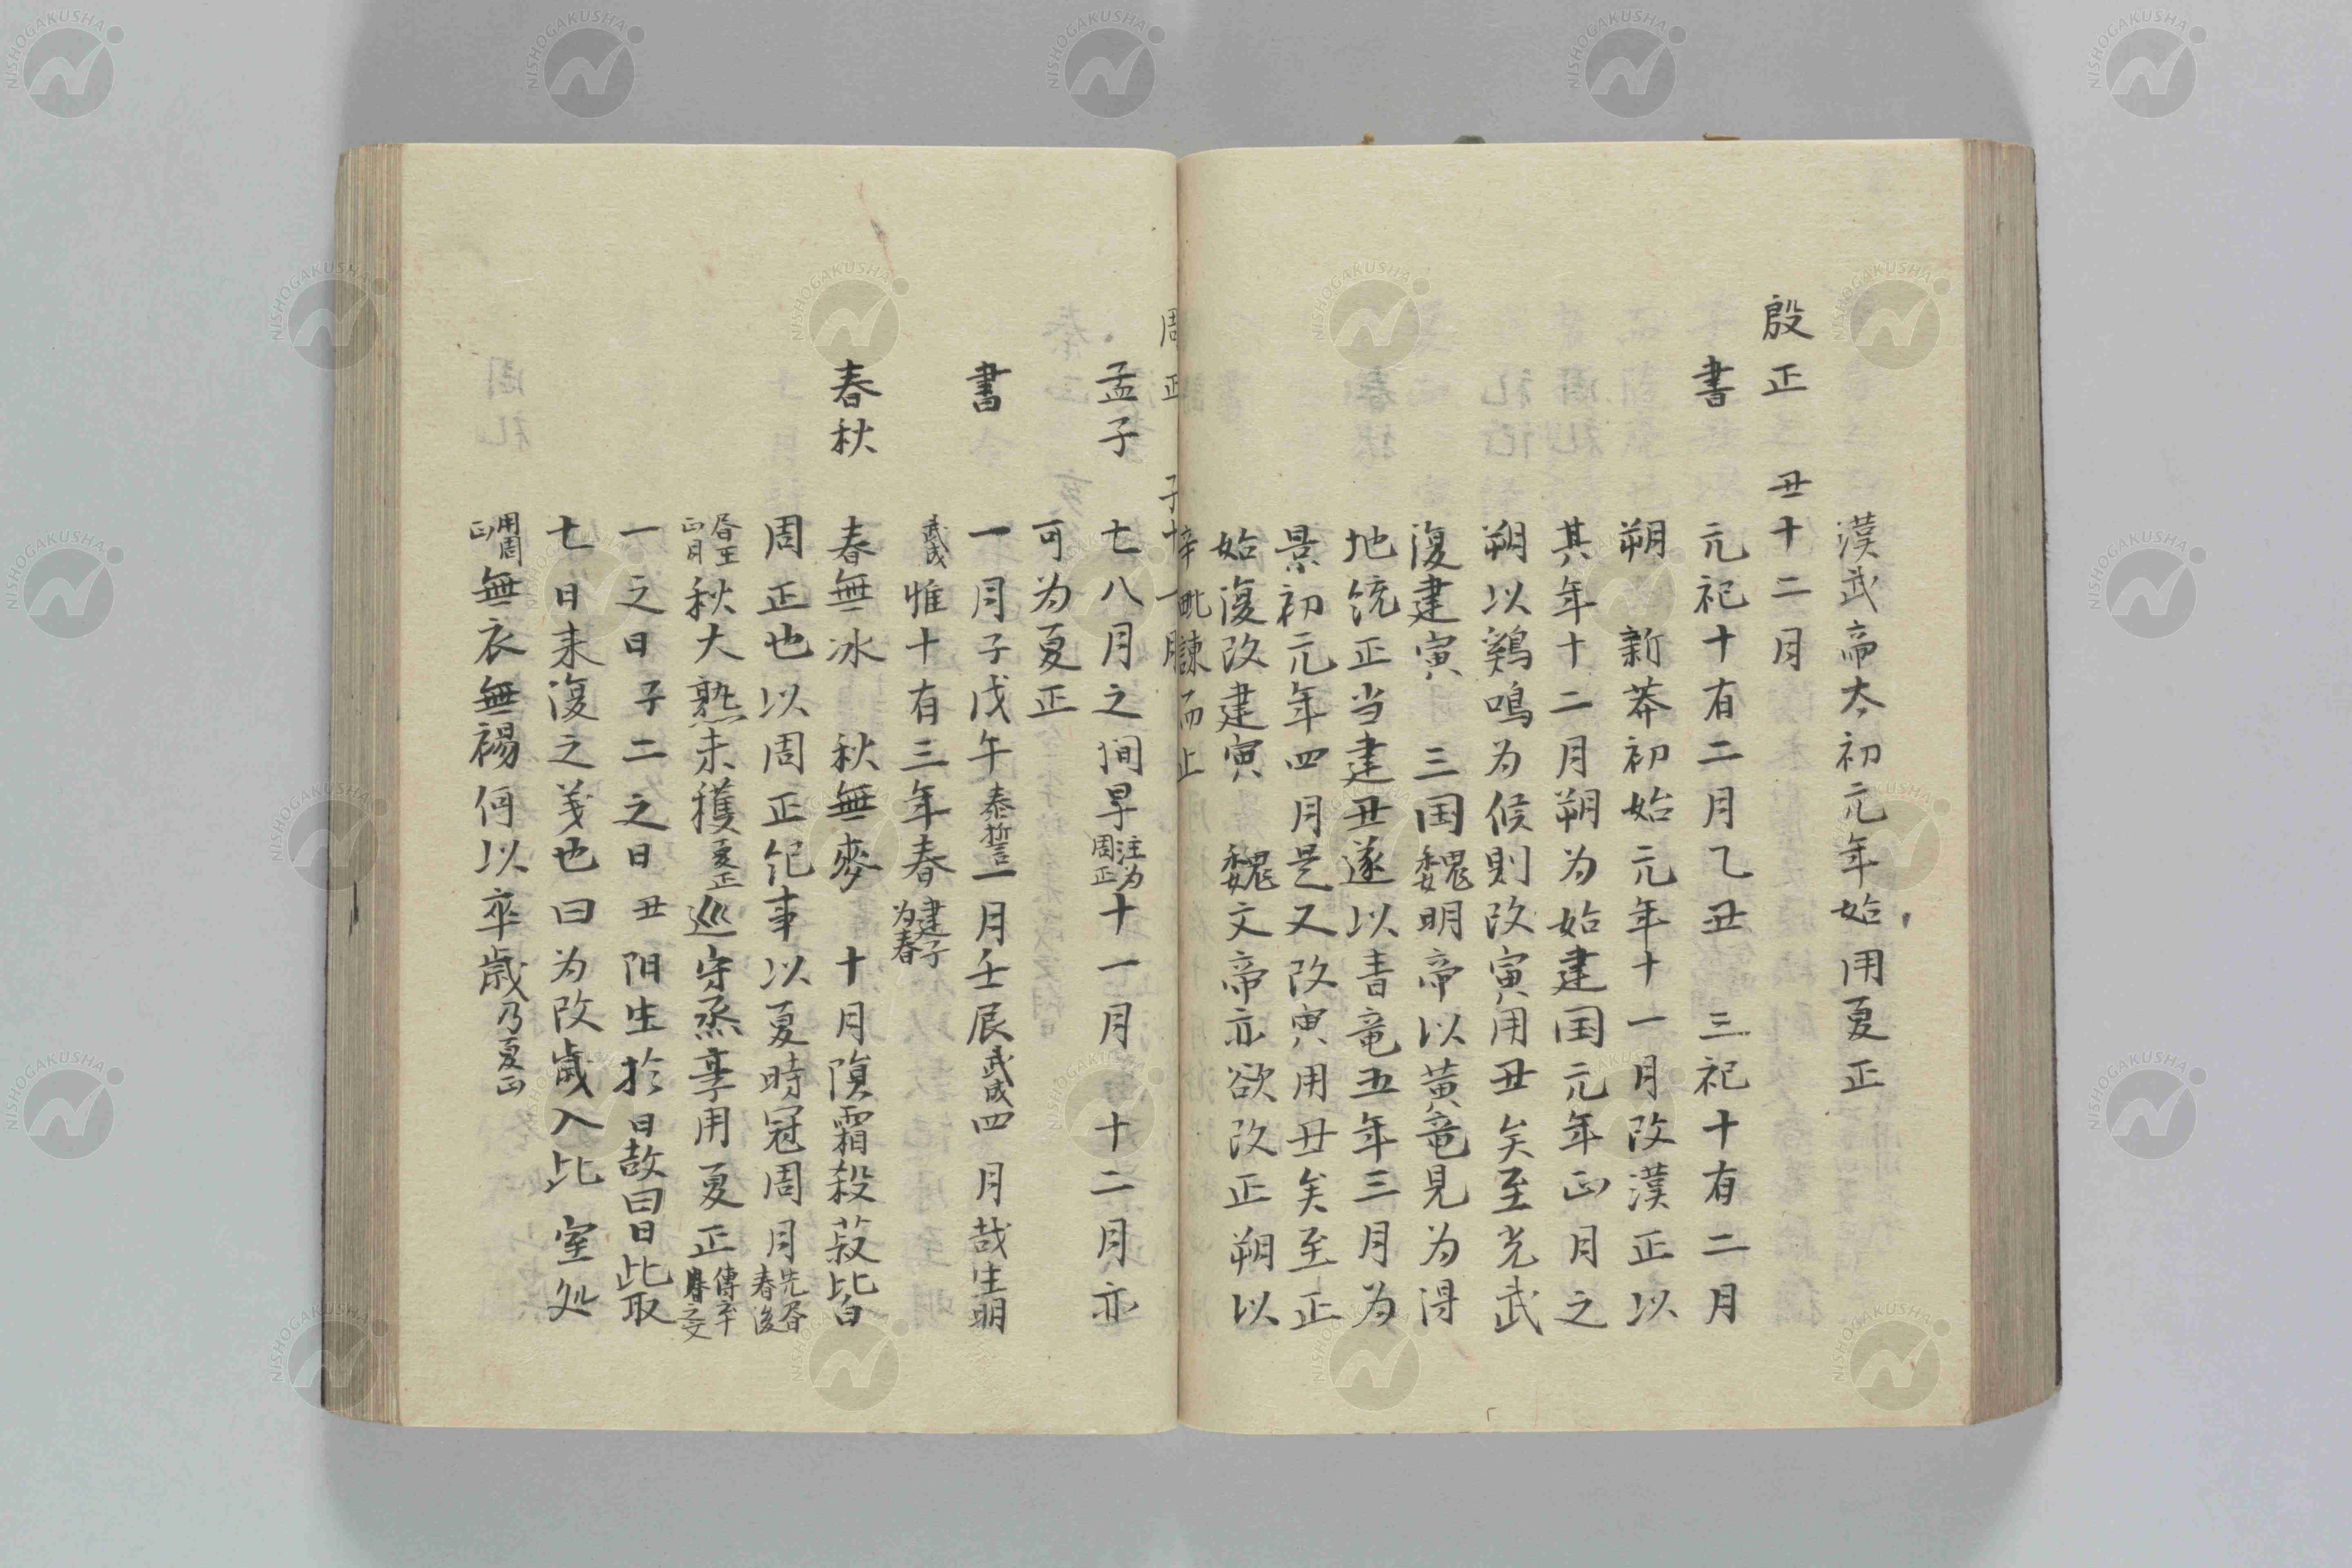 漢武帝太初元年始用夏正
殷正　丑十二月
書　元祀十有二月乙丑　三祀十有二月
朔　新莽初始元年十一月改漢正以
其年十二月朔为始建国元年正月之
朔以鶏鳴为候則改寅用丑矣至光武
復建寅　三国魏明帝以黄竜見为得
地統正当建丑遂以青竜五年三月为
景初元年四月是又改寅用丑矣至正
始復改建寅　魏文帝亦欲改正朔以
毗諫而止
周正　子十一月
孟子　七八月之间旱注为周正十一月　十二月亦
可为夏正
書　一月子戊午泰誓一月壬辰武成四月哉生明
武成惟十有三年春建子为春
春秋　春無冰　秋無麥　十月隕霜殺菽皆
周正也以周正紀事以夏時冠周月
春王正月秋大熟未穫夏正巡守烝享用夏正
一之日子二之日丑阳生於日故曰日此取
七日来復之義也曰为改歲入此室処
用周正無衣無褐何以卒歲乃夏正
NISHOGAKUSHA